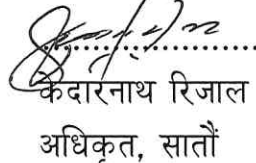 केदारनाथ रिजाल
अधिकृत, सातौं